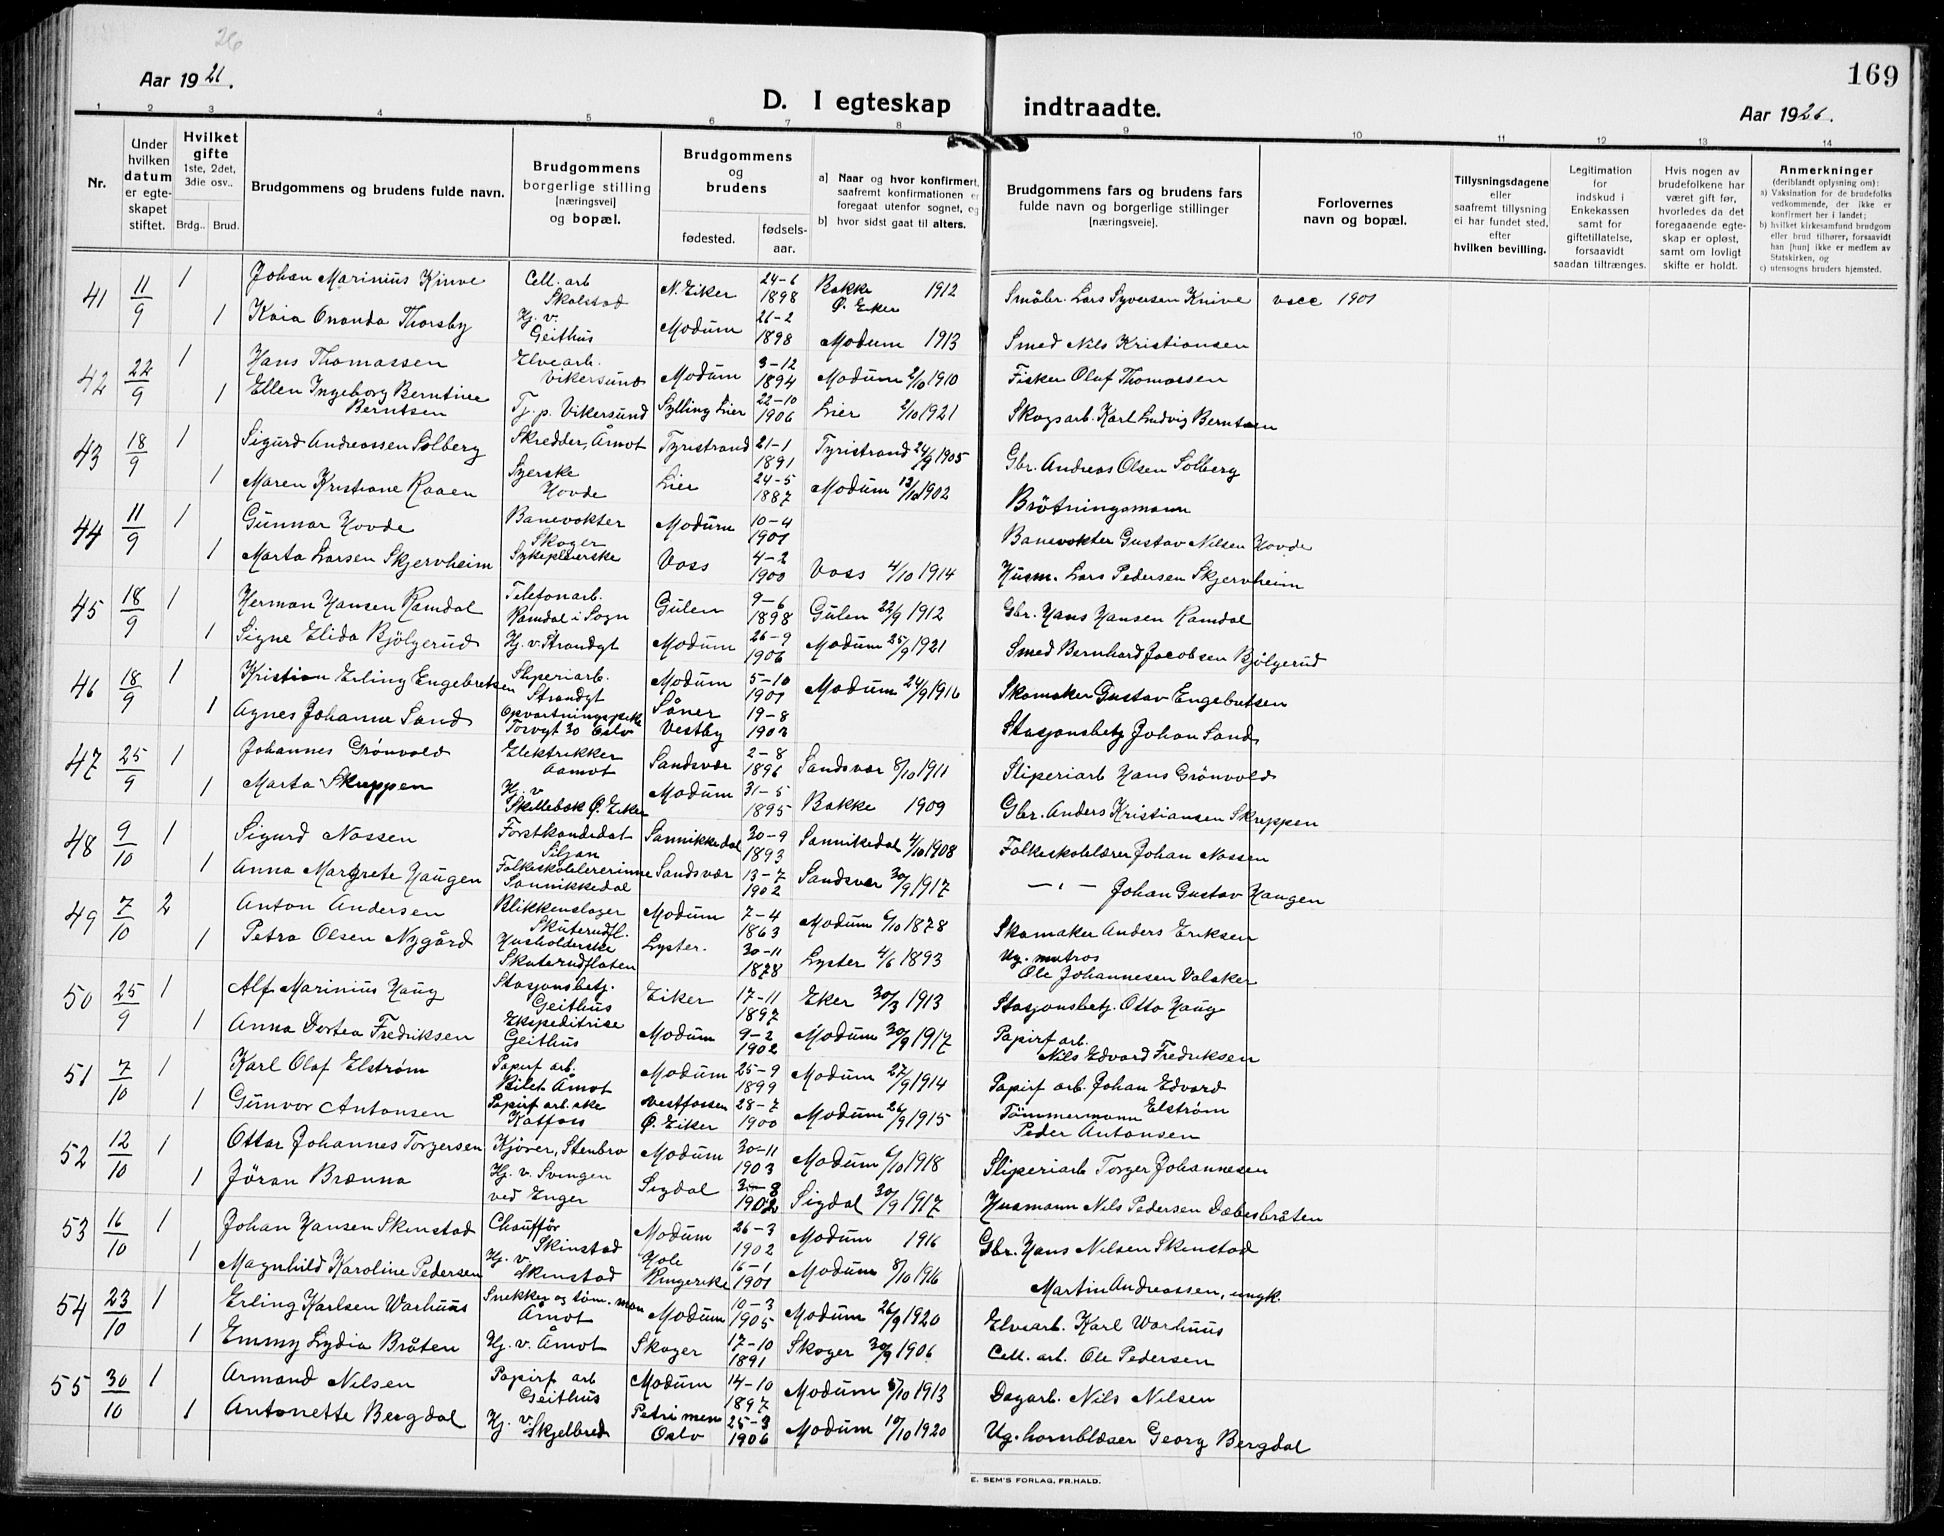 26
Aar 1921.
D. I egteskap indtraadte.
169
Aar 1926
1 2 3 4 5 6 7 8 9 10 11 12 13 14
Nr.
Under hvilken datum er egteskapet stiftet.
Hvilket gifte 1ste, 2det, 3die osv..
Brdg.. Brud.
Brudgommens og brudens fulde navn.
Brudgommens borgerlige stilling [næringsvei] og bopæl.
Brudgommens og brudens
fødested. fødselsaar.
a) Naar og hvor konfirmert, saafremt konfirmationen er foregaat utenfor sognet, og
b) hvor sidst gaat til alters.
Brudgommens fars og brudens fars fulde navn og borgerlige stillinger [næringsveie].
Forlovernes navn og bopæl.
Tillysningsdagene eller saafremt tillysning ei har fundet sted, efter hvilken bevilling.
Legitimation for indskud i Enkekassen samt for giftetillatelse, forsaavidt saadan tiltrænges.
Hvis nogen av brudefolkene har været gift før, hvorledes da det foregaaende egteskap er opløst, samt om lovligt skifte er holdt.
Anmerkninger (deriblandt oplysning om):
a) Vaksination for de brudefolks vedkommende, der ikke er konfirmert her i landet;
b) hvilket kirkesamfund brudgom eller brud tilhører, forsaavidt han [hun] ikke er medlem av Statskirken, og
c) utensogns bruders hjemsted.
41 11/9 1 Johan Marinius Knive Cell. arb Skalstad N. Eiker 24-6 1898 Bakke Ø. Eker 1912 Småbr. Lars Syversen Knive vacc 1901
1 Kaia Ananda Thorsby Hj. v. Geithus Modum 26-2 1898 Modum 1913 Smed Nils Kristiansen
42 22/9 1 Hans Thomassen Elvearb. Vikersund Modum 3-12 1894 Modum 2/10 1910 Fisker Olaf Thomassen
1 Ellen Ingeborg Berntine Berntsen Tj. p. Vikersund Sylling Lier 22-10 1906 Lier 2/10 1921 Skogsarb. Karl Ludvig Berntsen
43 18/9 1 Sigurd Andreassen Solberg Skredder, Åmot Tyristrand 21-1 1891 Tyristrand 24/9 1905 Gbr. Andreas Olsen Solberg
1 Maren Kristiane Raaen Syerske Hovde Lier 24-5 1887 Modum 12/10 1902 Brötningsmann
44 11/9 1 Gunnar Hovde Banevokter Skoger Modum 10-4 1901 Banevokter Gustav Nilsen Hovde
1 Marta Larsen Skjervheim Sykepleierske Voss 4-2 1900 Voss 4/10 1914 Husm. Lars Pedersen Skjervheim
45 18/9 1 Herman Hansen Ramdal Telefonarb. Ramdal i Sogn Gulen 9-6 1898 Gulen 22/9 1912 Gbr. Hans Hansen Ramdal
1 Signe Elida Bjölgerud Hj. v. Strandgt Modum 26-9 1906 Modum 25/9 1921 Smed Bernhard Jacobsen Bjölgerud
46 18/9 1 Kristian Erling Engebretsen Sliperiarb. Strandgt Modum 5-10 1901 Modum 24/9 1916 Skomaker Gustav Engebretsen
1 Agnes Johanne Sand Opvartningspike Torvgt 30 Oslo Såner Vestby 19-8 1902 Stasjonsbetj Johan Sand
47 25/9 1 Johannes Grönvold Elektrikker Aamot Sandsvær 2-8 1896 Sandsvær 8/10 1911 Sliperiarb Hans Grönvold
1 Marta Skreppen Hj. v Skillebæk Ø. Eiker Modum 31-5 1895 Bakke 1909 Gbr. Anders Kristiansen Skreppen
48 9/10 1 Sigurd Nossen Forstkandidat Siljan Sannikkedal 30-9 1893 Sannikedal 4/10 1908 Folkeskolelærer Johan Nossen
1 Anna Margrete Haugen Folkeskolelererinne Sannikkedal Sandsvær 13-7 1902 Sandsvær 30/9 1917 — " — Johan Gustav Haugen
49 7/10 2 Anton Andersen Blikkenslager Skuterudfl. Modum 7-4 1863 Modum 6/10 1878 Skomaker Anders Eriksen
1 Petra Olsen Nygård Husholderske Skuterudflaten Lyster. 30-11 1878 Lyster 4/6 1893 Ug. matros Ole Johannesen Valaker
50 25/9 1 Alf Marinius Haug Stasjonsbetj. Geithus Eiker 17-11 1897 Eker 30/3 1913 Stasjonsbetj. Otto Haug
1 Anna Dortea Fredriksen Ekspeditrise Geithus Modum 9-2 1902 Modum 30/9 1917 Papirf arb. Nils Edvard Fredriksen
51 7/10 1 Karl Olaf Elstrøm Papirf arb. Bilet Åmot Modum 25-9 1899 Modum 27/9 1914 Papirf arb. Johan Edvard Elstrøm
1 Gunvor Antonsen Papirf arb.ske Katfoss Vestfossen Ø. Eiker 28-7 1900 Modum 26/9 1915 Tömmermann Peder Antonsen
52 12/10 1 Ottar Johannes Torgersen Kjörer, Stenbro Modum 30-11 1903 Modum 6/10 1918 Sliperiarb Torger Johannesen
1 Jöran Brenna Hj. v. Svingen ved Enger Sigdal 31-8 1902 Sigdal 30/9 1917 Husmann Nils Pedersen Dæbesbråten
53 16/10 1 Johan Hansen Skinstad Chauffør Skinstad Modum 26-3 1902 Modum 1916 Gbr. Hans Nilsen Skinstad
1 Magnhild Karoline Pedersen Hj. v. Skinstad Hole Ringerike 16-1 1901 Modum 8/10 1916 Martin Andreassen, ungk.
54 23/10 1 Erling Karlsen Warhuus Snekker og töm.man Åmot Modum 10-3 1905 Modum 26/9 1920 Elvearb. Karl Warhuus
1 Emmy Lydia Bråten Hj. v. Åmot Skoger 17-10 1891 Skoger 30/9 1906 Cell. arb. Ole Pedersen
55 30/10 1 Armand Nilsen Papirf arb Geithus Modum 14-10 1897 Modum 5/10 1913 Dagarb. Nils Nilsen
1 Antonette Bergdal Hj. v. Skjelbred Petri men Oslo 25-3 1906 Modum 10/10 1920 Ug. hornblæser Georg Bergdal
E. SEM'S FORLAG, FR.HALD.